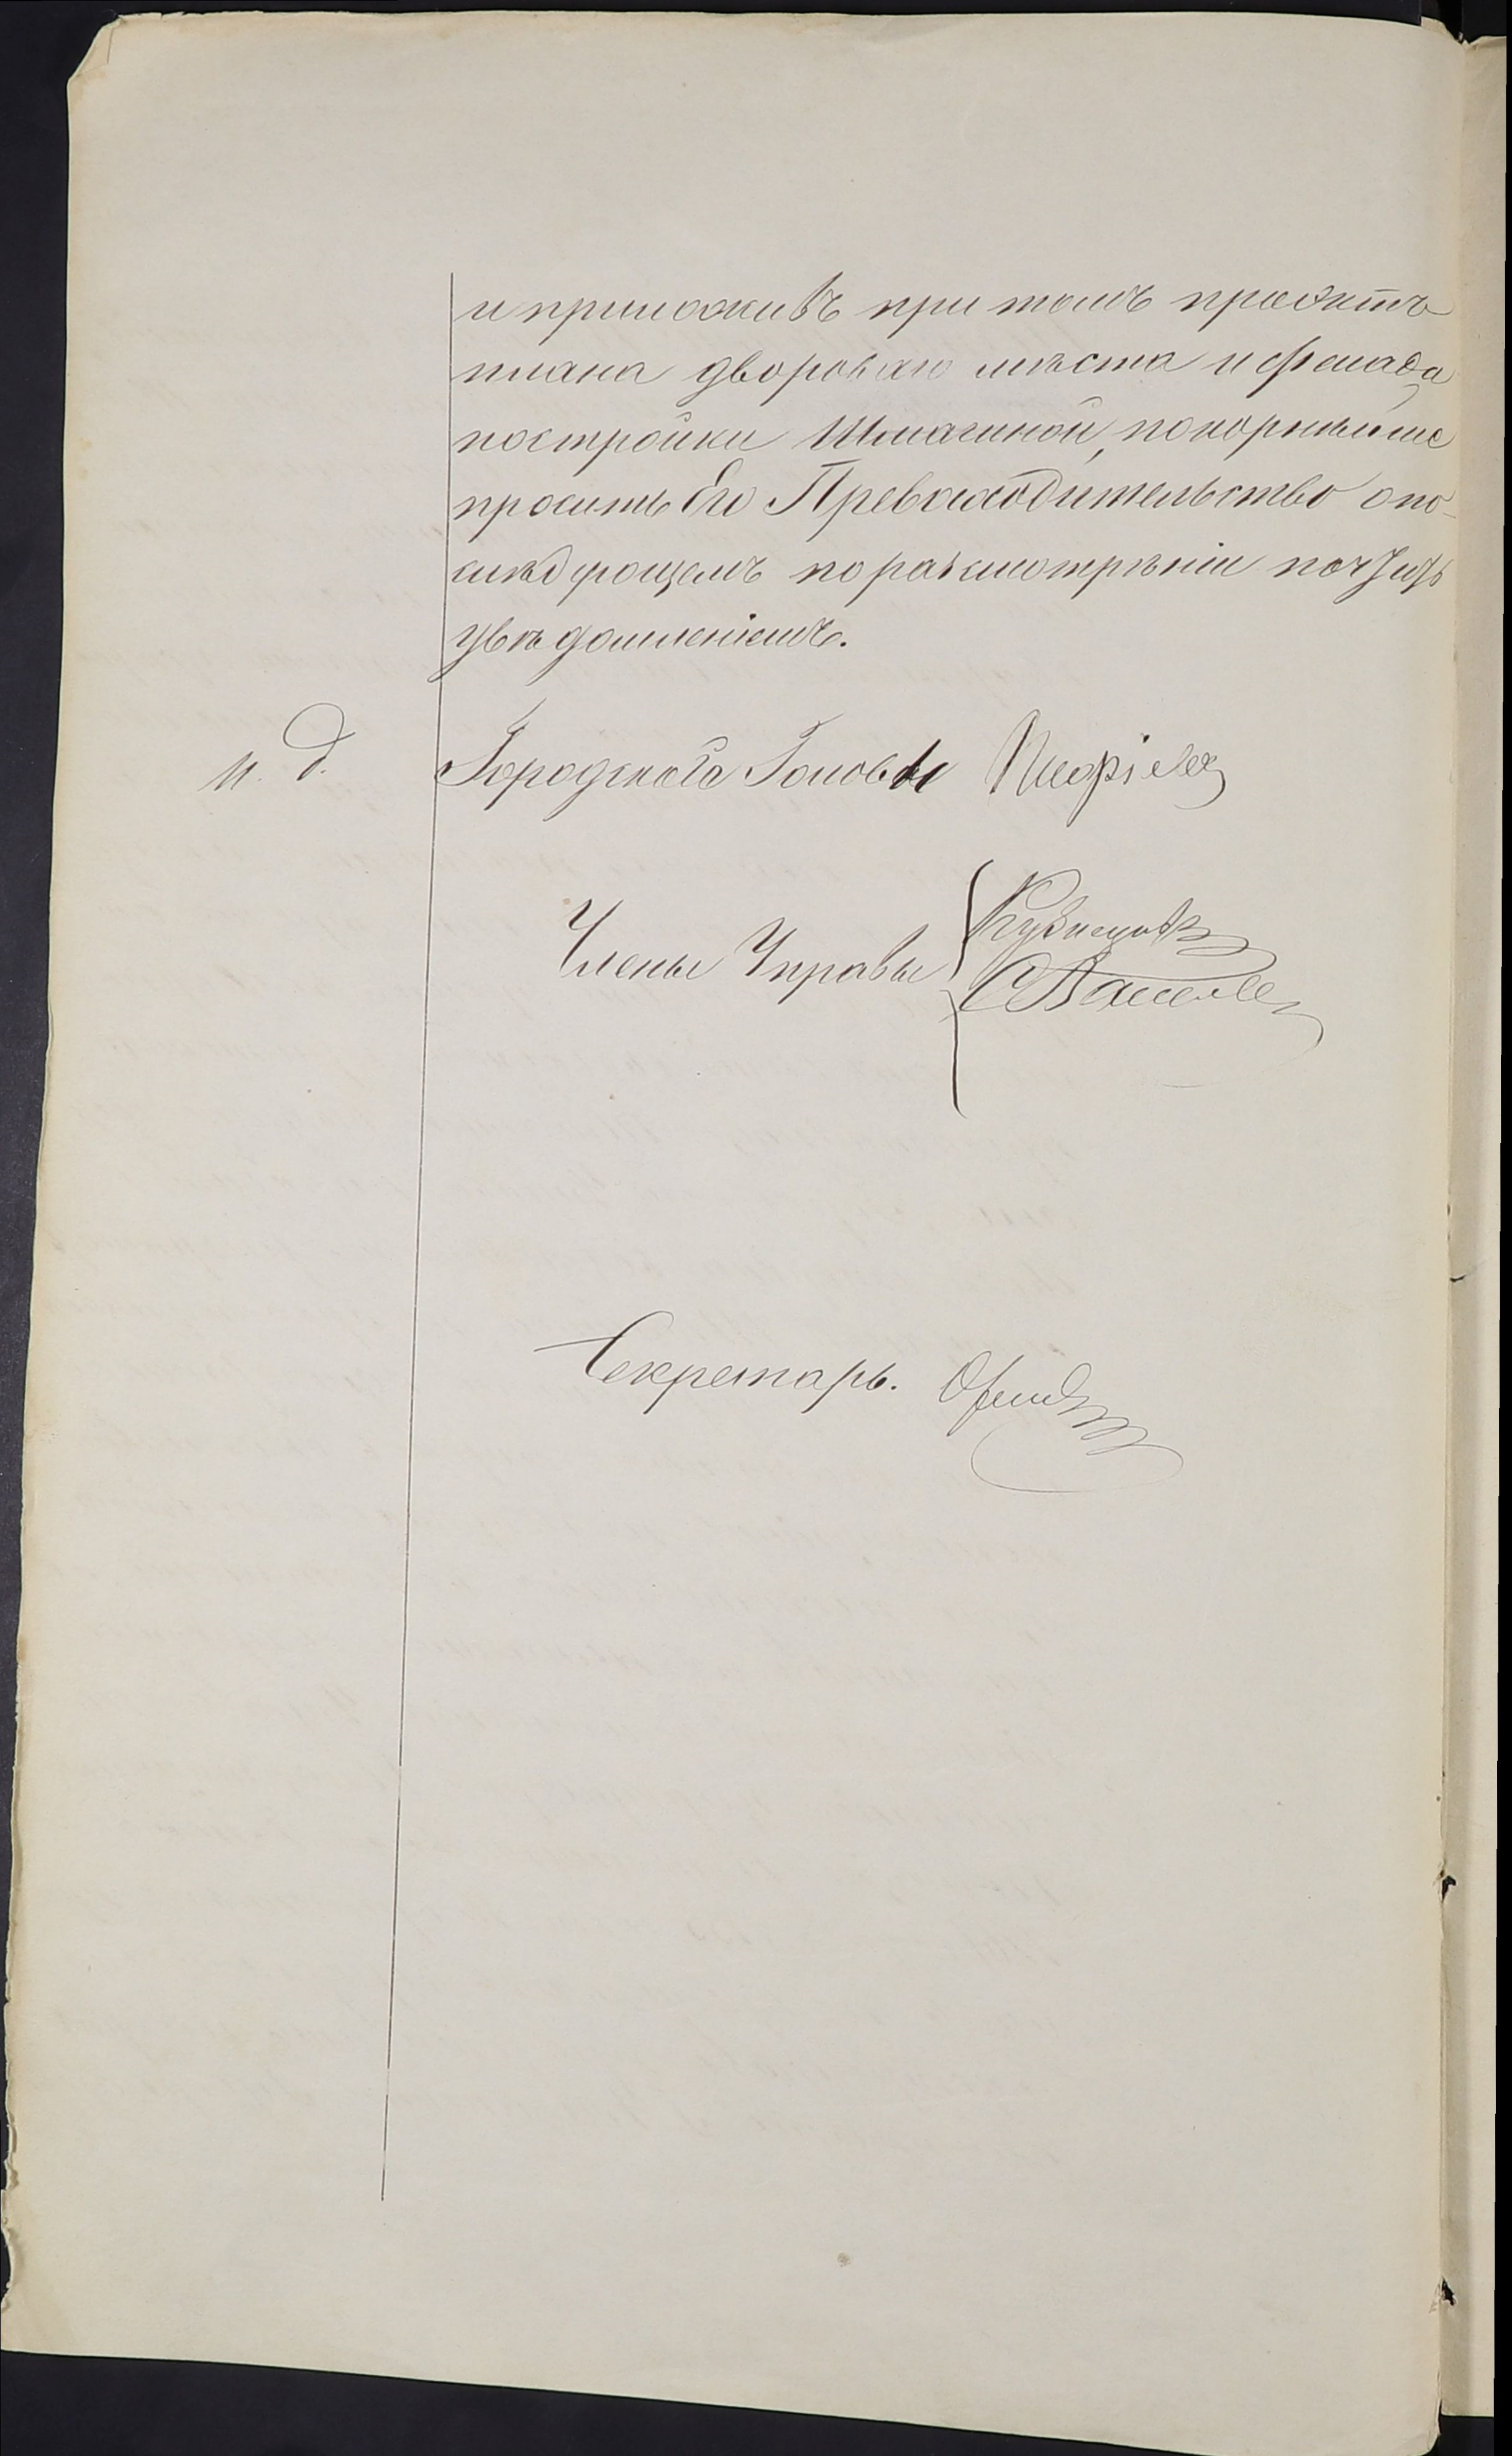 и приложивъ при томъ проэктъ
плана двороваго мѣста и фасада
постройки Шмагиной, покорнѣйше
просить Его Превосходительство опо-
слѣдующемъ по разсмотрѣніи почтить
увѣдомленіемъ.
и. д. Городскаго Головы
Члены Управы { Кузнецовъ
Секретарь.